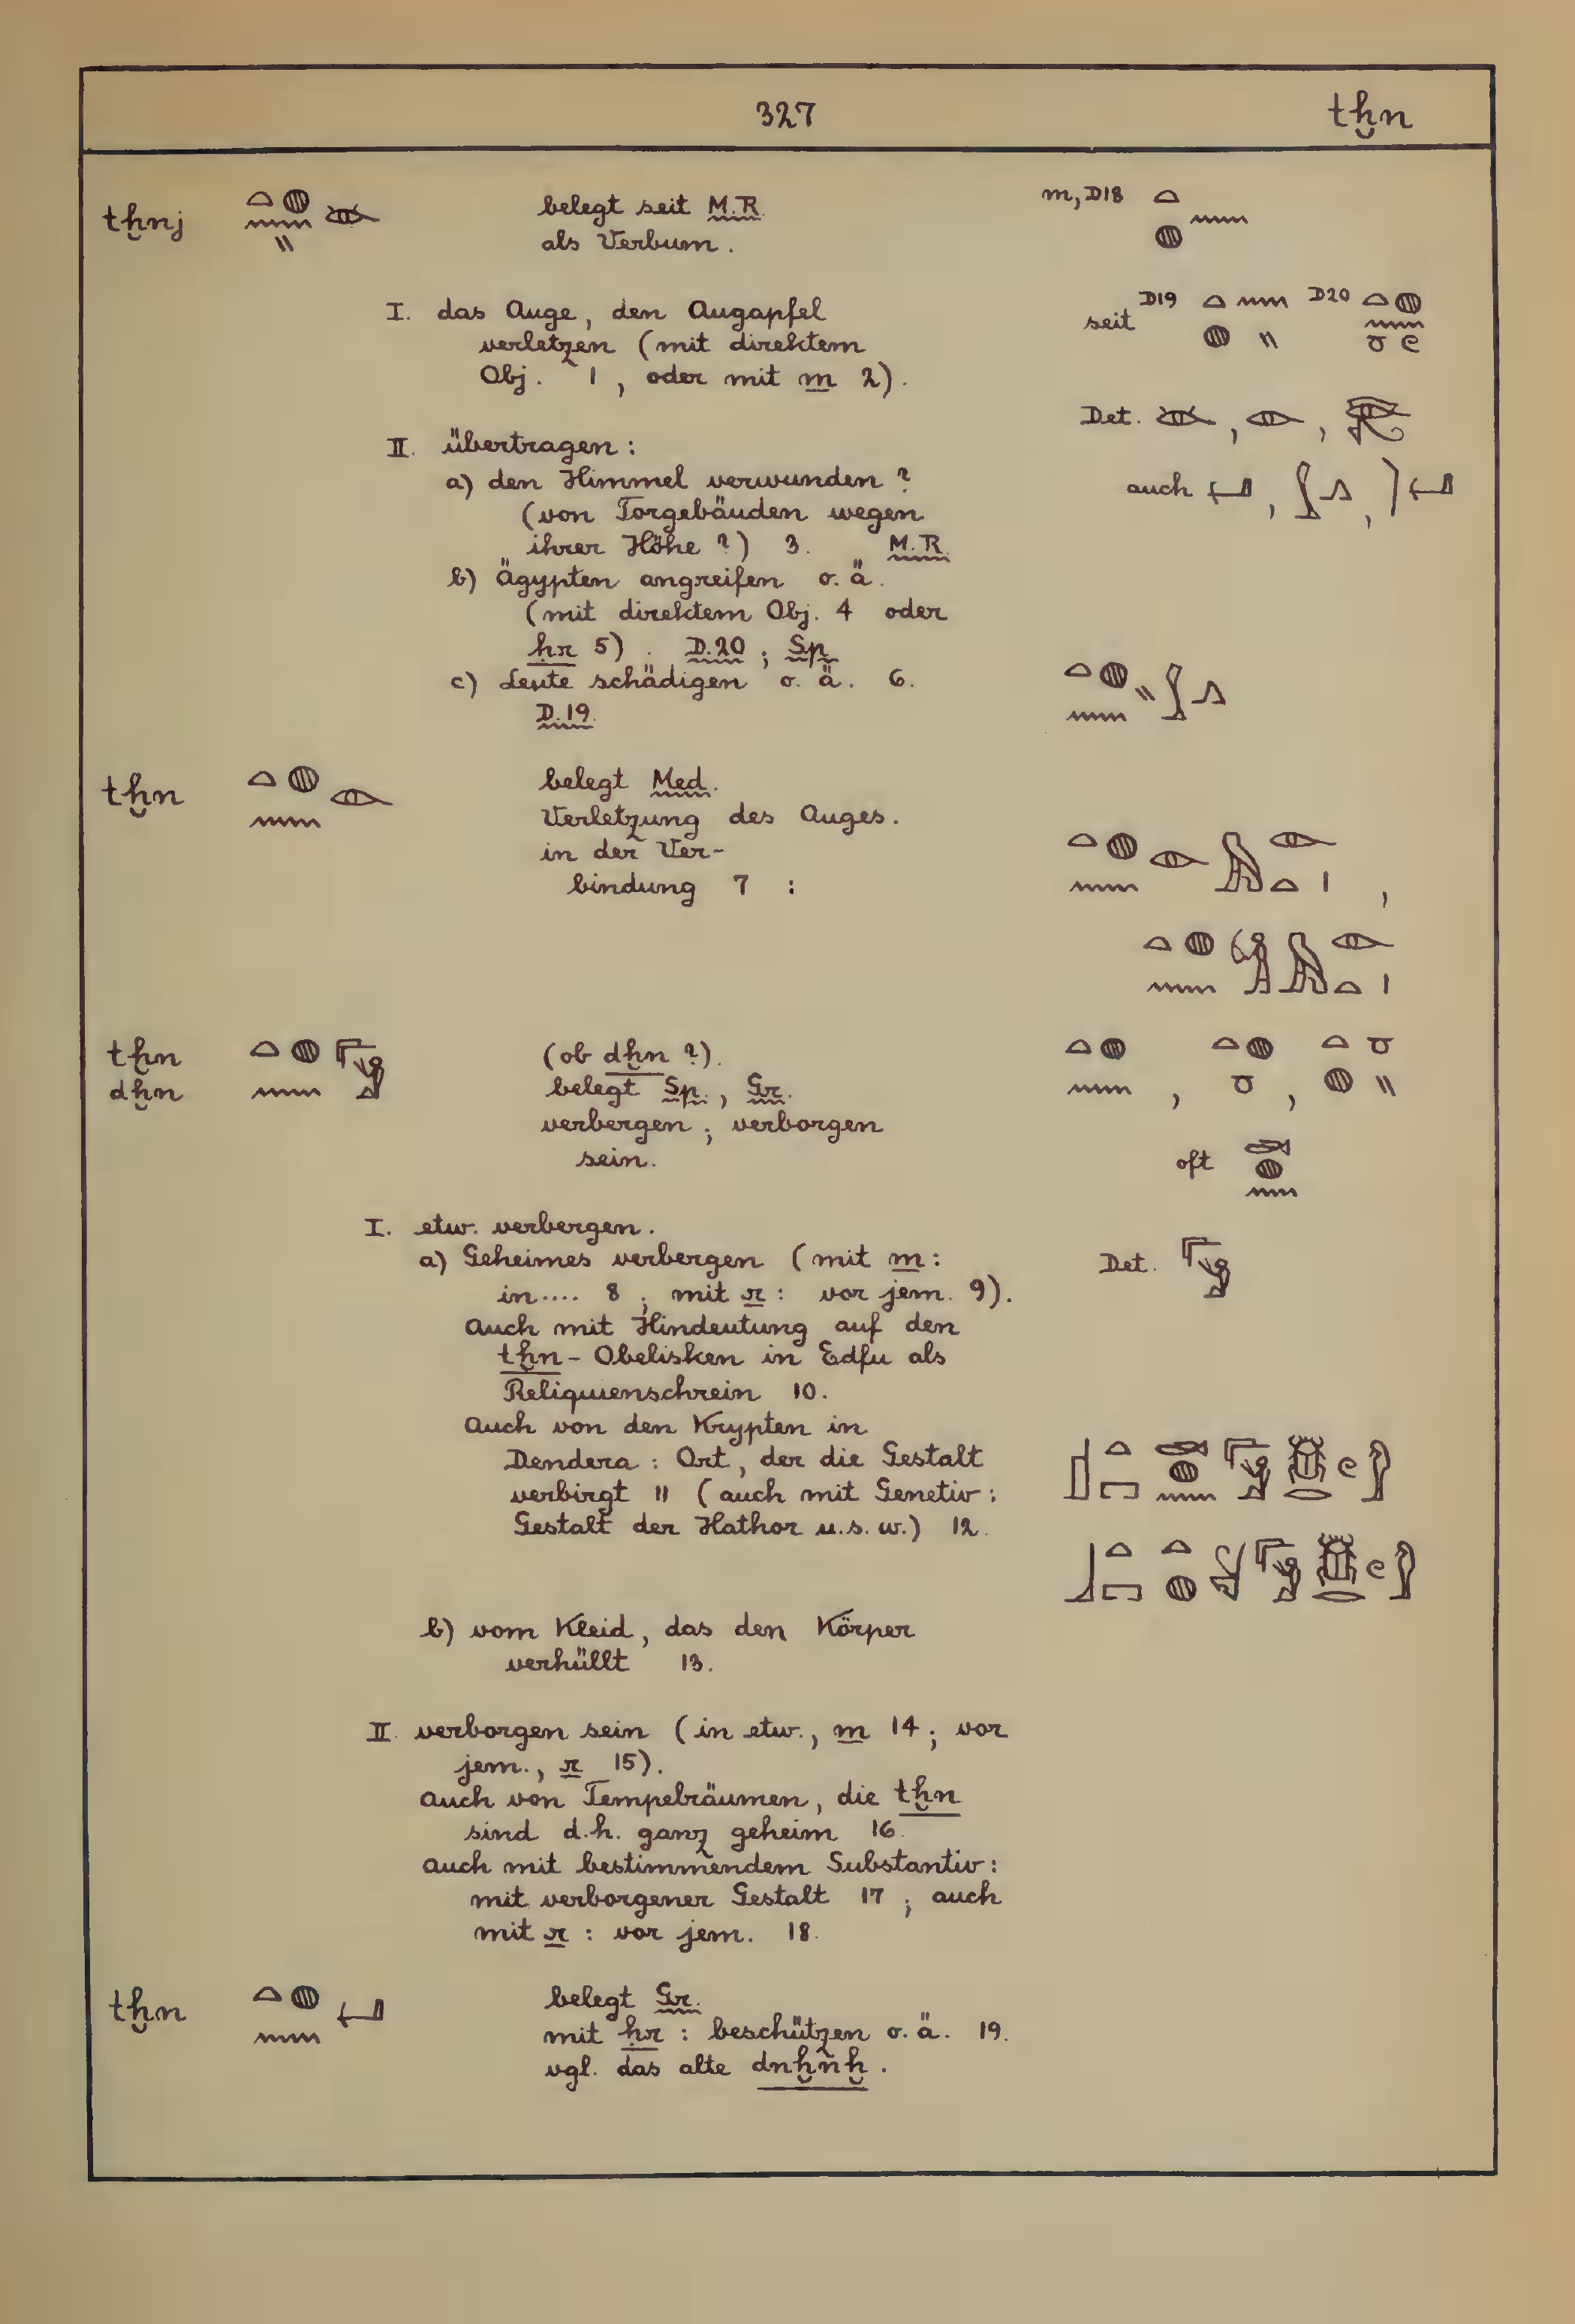 327
tḫn
tḫnj
belegt seit M.R.
als Verbum.
m, D18
I. das Auge, den Augapfel
verletzen (mit direktem
Obj. 1, oder mit m 2).
seit D19 D20
Det. , ,
auch , ,
II. übertragen:
a) den Himmel verwunden?
(von Torgebäuden wegen
ihrer Höhe?) 3. M.R.
b) Ägypten angreifen o.ä.
(mit direktem Obj. 4 oder
ḥr 5). D.20; Sp.
c) Leute schädigen o.ä. 6.
D.19.
tḫn
belegt Med.
Verletzung des Auges.
in der Ver-
bindung 7 :
tḫn
dḫn
(ob dḫn?).
belegt Sp., Gr.
verbergen; verborgen
sein.
oft
I. etw. verbergen.
a) Geheimes verbergen (mit m:
in.... 8; mit r: vor jem. 9).
Det.
Auch mit Hindeutung auf den
tḫn-Obelisken in Edfu als
Reliquienschrein 10.
Auch von den Krypten in
Dendera: Ort, der die Gestalt
verbirgt 11 (auch mit Genetiv:
Gestalt der Hathor u.s.w.) 12.
b) vom Kleid, das den Körper
verhüllt 13.
II. verborgen sein (in etw., m 14; vor
jem., r 15).
auch von Tempelräumen, die tḫn
sind d.h. ganz geheim 16.
auch mit bestimmendem Substantiv:
mit verborgener Gestalt 17; auch
mit r: vor jem. 18.
tḫn
belegt Gr.
mit ḥr: beschützen o.ä. 19.
vgl. das alte dnḫnḫ.